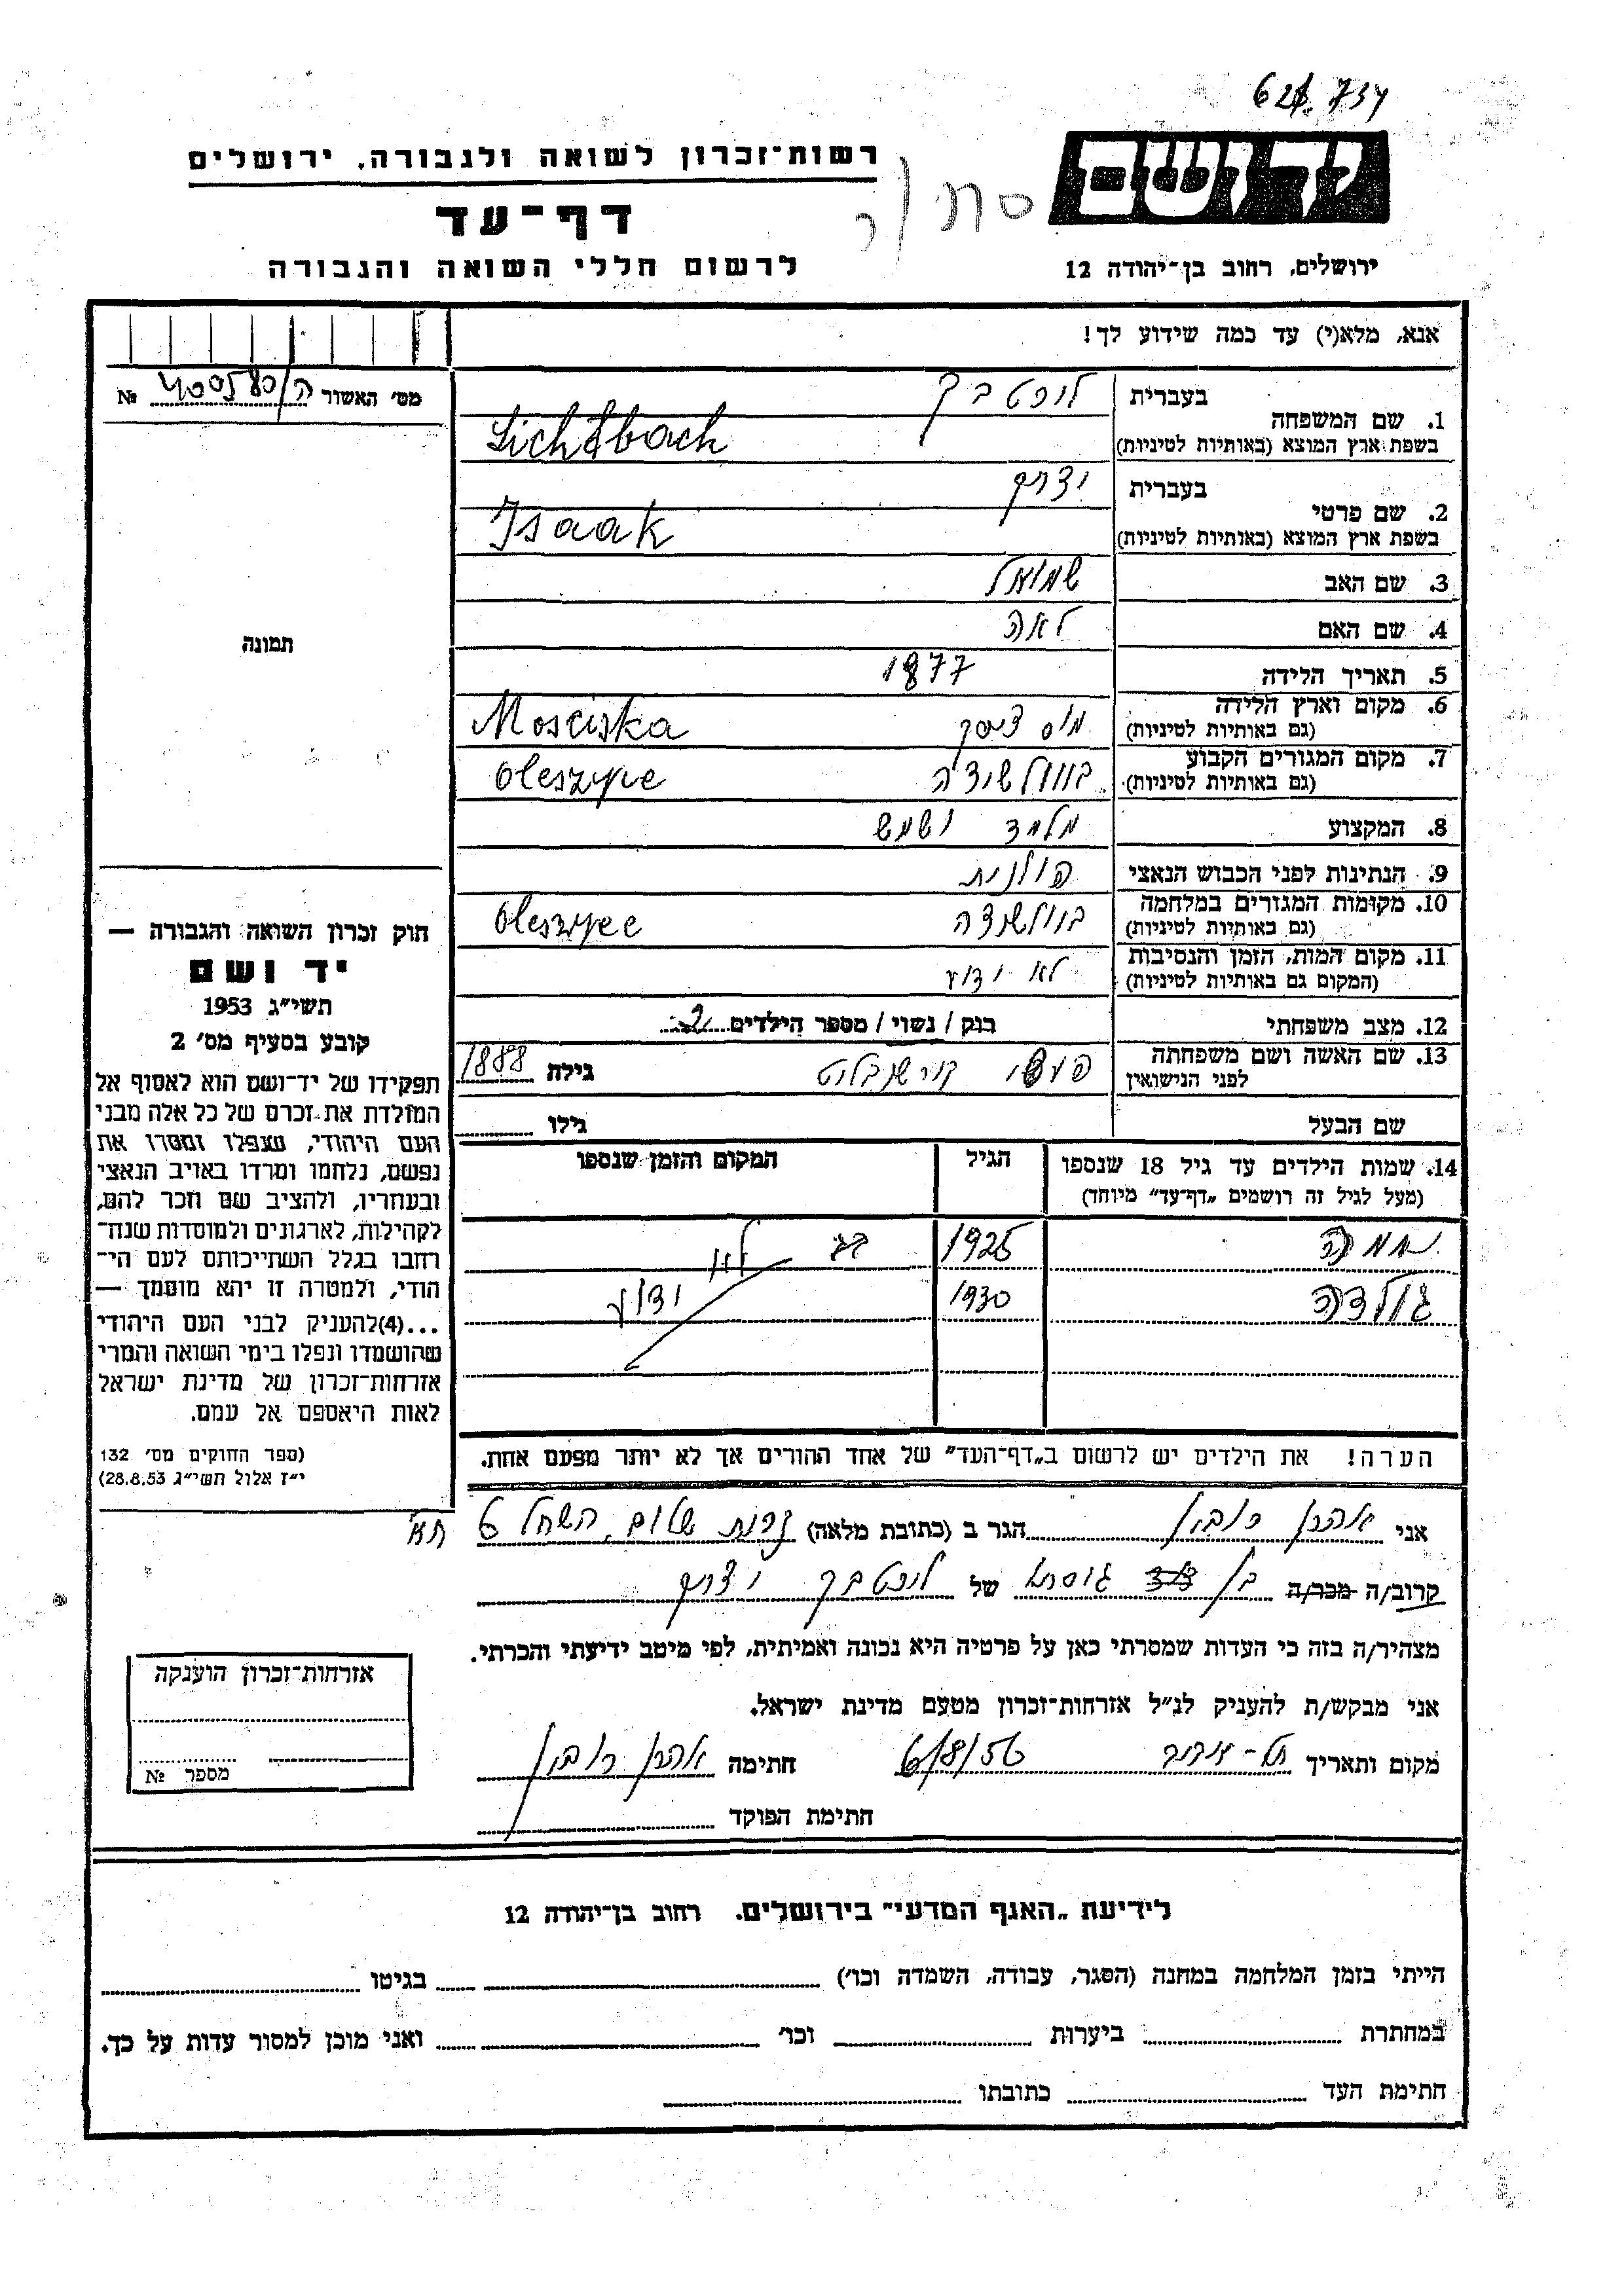 רשות־זכרון לשואה ולגבורה, ירושלים
דף־עד
לרשום חללי השואה והגבורה
יד ושם
ירושלים, רחוב בן־יהודה 12
אנא, מלא(י) עד כמה שידוע לך!
מס׳ האשור №
1. שם המשפחה בעברית
בשפת ארץ המוצא (באותיות לטיניות) Lichtbach
2. שם פרטי בעברית יצחק
בשפת ארץ המוצא (באותיות לטיניות) Isaak
3. שם האב שמואל
4. שם האם לאה
5. תאריך הלידה 1877
6. מקום וארץ הלידה
(גם באותיות לטיניות) Mosciska
7. מקום המגורים הקבוע
(גם באותיות לטיניות) Oleszyce
8. המקצוע מלמד ושמש
9. הנתינות לפני הכבוש הנאצי פולנית
10. מקומות המגורים במלחמה
(גם באותיות לטיניות) Oleszyce
11. מקום המות, הזמן והנסיבות לא ידוע
(המקום גם באותיות לטיניות)
12. מצב משפחתי בוק / נשוי / מספר הילדים 2
13. שם האשה ושם משפחתה
לפני הנישואין גילה 1888
שם הבעל גילו
14. שמות הילדים עד גיל 18 שנספו
(מעל לגיל זה רושמים „דף־עד" מיוחד)
הגיל
המקום והזמן שנספו
1925 לא
גולדה 1930 ידוע
הערה! את הילדים יש לרשום ב„דף־העד" של אחד ההורים אך לא יותר מפעם אחת.
תמונה
חוק זכרון השואה והגבורה —
יד ושם
תשי״ג 1953
קובע בסעיף מס׳ 2
תפקידו של יד־ושם הוא לאסוף אל
המולדת את זכרם של כל אלה מבני
העם היהודי, שנפלו ומסרו את
נפשם, נלחמו ומרדו באויב הנאצי
ובעוזריו, ולהציב שם וזכר להם,
לקהילות, לארגונים ולמוסדות שנח־
רחבו בגלל השתייכותם לעם הי־
הודי, ולמטרה זו יהא מוסמך —
...(4)להעניק לבני העם היהודי
שהושמדו ונפלו בימי השואה והמרי
אזרחות־זכרון של מדינת ישראל
לאות היאספם אל עמם.
(ספר החוקים מס׳ 132
י״ז אלול תשי״ג 28.8.53)
אני אהרן רובין הגר ב (כתובת מלאה) נוה שלום, השחל 6 תא
קרוב/ה מכר/ה בן של יצחק
מצהיר/ה בזה כי העדות שמסרתי כאן על פרטיה היא נכונה ואמיתית, לפי מיטב ידיעתי והכרתי.
אני מבקש/ת להעניק לנ״ל אזרחות־זכרון מטעם מדינת ישראל.
מקום ותאריך תל-אביב 6/8/56 חתימה אהרן רובין
חתימת הפוקד
אזרחות־זכרון הוענקה
מספר №
לידיעת „האגף המדעי" בירושלים. רחוב בן־יהודה 12
הייתי בזמן המלחמה במחנה (הסגר, עבודה, השמדה וכו׳) בגיטו
במחתרת ביערות וכו׳ ואני מוכן למסור עדות על כך.
חתימת העד כתובתו